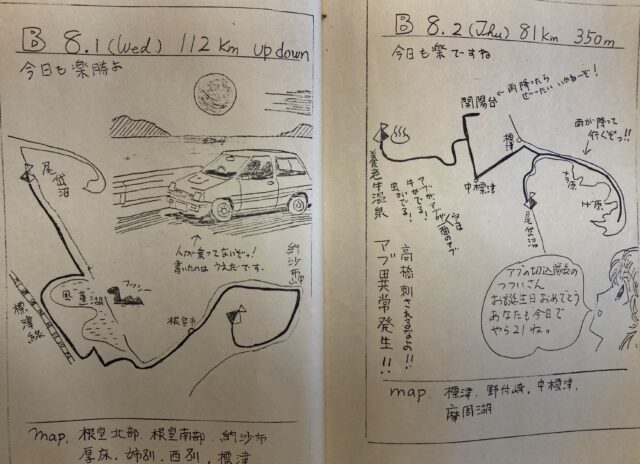 B 8.1 (Wed) 112km up down
今日も楽勝よ
尾岱沼
人が乗ってないぞっ!
書いたのはうえだです。
納沙布
風蓮湖
フッシー
標津線
根室市
map. 根室北部. 根室南部. 納沙布
厚床. 姉別. 西別, 標津
B 8.2 (Thu) 81km 350m
今日も楽ですね
開陽台
雨降ったら
ぜーたいいかねーぞ!
雨が降って
行くぞっ!!
標津
養老牛温泉
中標津
尾岱沼
牛がでる!
虫がでる!
高橋刺されるなよの!!
アブ田異常発生!!
アブの切込隊長の
つついさん
お誕生日おめでとう
あなたも今日で
やう21ね。
map. 標津. 野付崎, 中標津.
摩周湖